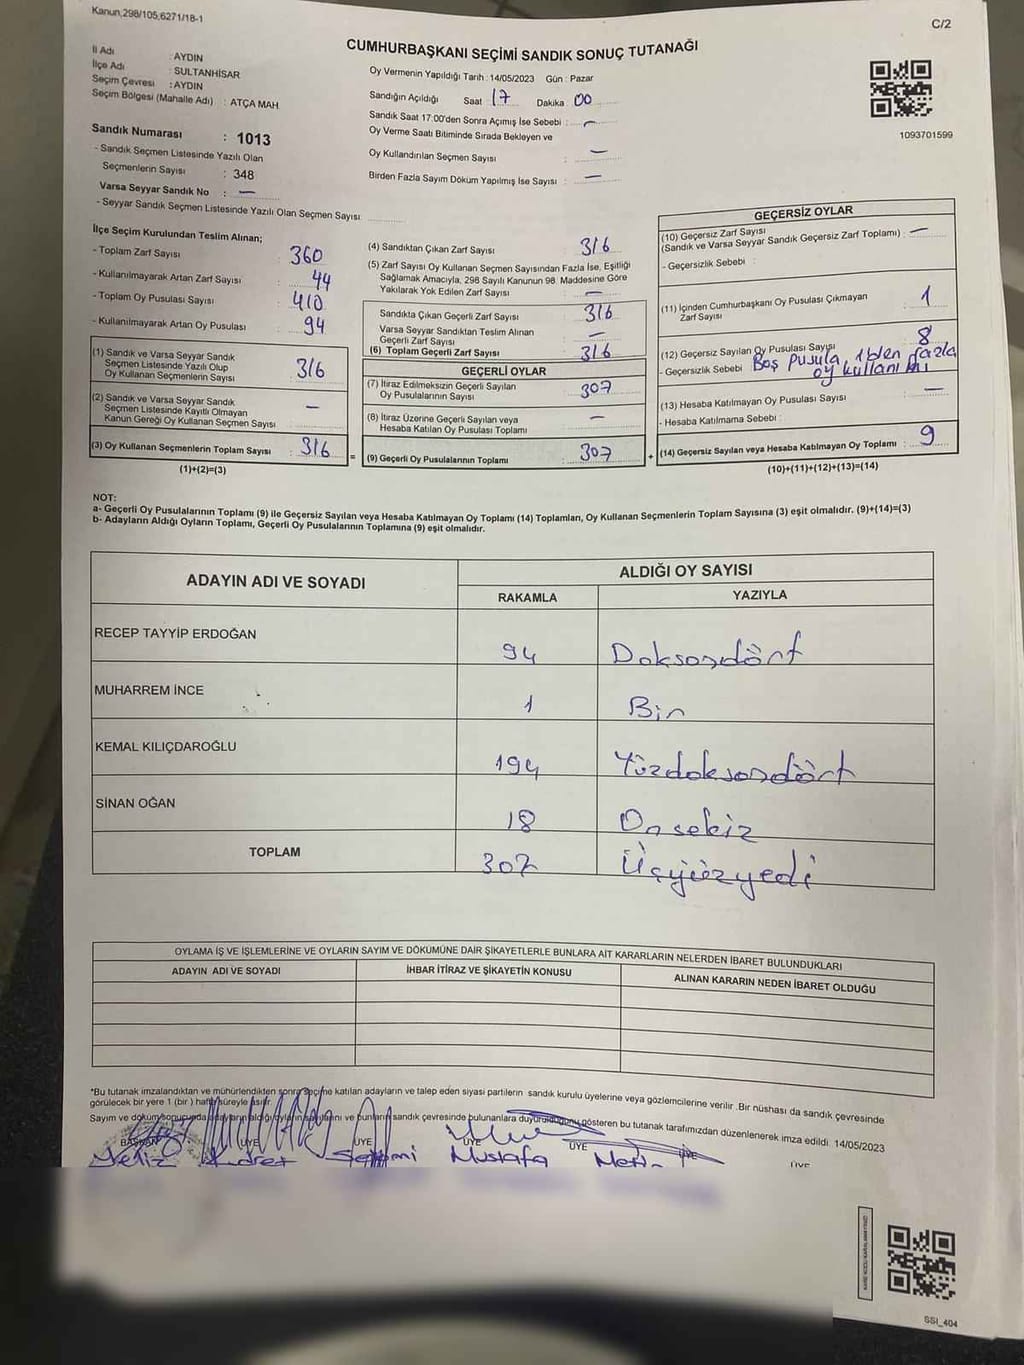 Kanun;298/105,6271/18-1
C/2
CUMHURBAŞKANI SEÇİMİ SANDIK SONUÇ TUTANAĞI
İl Adı : AYDIN
İlçe Adı : SULTANHİSAR
Seçim Çevresi : AYDIN
Seçim Bölgesi (Mahalle Adı) : ATÇA MAH
Sandık Numarası : 1013
- Sandık Seçmen Listesinde Yazılı Olan
Seçmenlerin Sayısı : 348
Varsa Seyyar Sandık No : —
- Seyyar Sandık Seçmen Listesinde Yazılı Olan Seçmen Sayısı
Oy Vermenin Yapıldığı Tarih : 14/05/2023 Gün : Pazar
Sandığın Açıldığı Saat 17 Dakika 00
Sandık Saat 17:00'den Sonra Açımış İse Sebebi : —
Oy Verme Saati Bitiminde Sırada Bekleyen ve
Oy Kullandırılan Seçmen Sayısı : —
Birden Fazla Sayım Döküm Yapılmış İse Sayısı : —
1093701599
İlçe Seçim Kurulundan Teslim Alınan;
- Toplam Zarf Sayısı : 360
- Kullanılmayarak Artan Zarf Sayısı : 44
- Toplam Oy Pusulası Sayısı : 410
- Kullanılmayarak Artan Oy Pusulası : 94
(1) Sandık ve Varsa Seyyar Sandık
Seçmen Listesinde Yazılı Olup
Oy Kullanan Seçmenlerin Sayısı : 316
(2) Sandık ve Varsa Seyyar Sandık
Seçmen Listesinde Kayıtlı Olmayan
Kanun Gereği Oy Kullanan Seçmen Sayısı : —
(3) Oy Kullanan Seçmenlerin Toplam Sayısı : 316
(1)+(2)=(3)
=
(4) Sandıktan Çıkan Zarf Sayısı : 316
(5) Zarf Sayısı Oy Kullanan Seçmen Sayısından Fazla İse, Eşitliği
Sağlamak Amacıyla, 298 Sayılı Kanunun 98. Maddesine Göre
Yakılarak Yok Edilen Zarf Sayısı : —
Sandıkta Çıkan Geçerli Zarf Sayısı : 316
Varsa Seyyar Sandıktan Teslim Alınan
Geçerli Zarf Sayısı : —
(6) Toplam Geçerli Zarf Sayısı : 316
GEÇERLİ OYLAR
(7) İtiraz Edilmeksizin Geçerli Sayılan
Oy Pusulalarının Sayısı : 307
(8) İtiraz Üzerine Geçerli Sayılan veya
Hesaba Katılan Oy Pusulası Toplamı : —
(9) Geçerli Oy Pusulalarının Toplamı : 307
+
GEÇERSİZ OYLAR
(10) Geçersiz Zarf Sayısı
(Sandık ve Varsa Seyyar Sandık Geçersiz Zarf Toplamı) : —
- Geçersizlik Sebebi :
(11) İçinden Cumhurbaşkanı Oy Pusulası Çıkmayan
Zarf Sayısı : 1
(12) Geçersiz Sayılan Oy Pusulası Sayısı : 8
- Geçersizlik Sebebi Boş pusula, 1'den fazla
oy kullanımı
(13) Hesaba Katılmayan Oy Pusulası Sayısı : —
- Hesaba Katılmama Sebebi :
(14) Geçersiz Sayılan veya Hesaba Katılmayan Oy Toplamı : 9
(10)+(11)+(12)+(13)=(14)
NOT:
a- Geçerli Oy Pusulalarının Toplamı (9) ile Geçersiz Sayılan veya Hesaba Katılmayan Oy Toplamı (14) Toplamları, Oy Kullanan Seçmenlerin Toplam Sayısına (3) eşit olmalıdır. (9)+(14)=(3)
b- Adayların Aldığı Oyların Toplamı, Geçerli Oy Pusulalarının Toplamına (9) eşit olmalıdır.
ADAYIN ADI VE SOYADI
ALDIĞI OY SAYISI
RAKAMLA YAZIYLA
RECEP TAYYİP ERDOĞAN 94 Doksandört
MUHARREM İNCE 1 Bir
KEMAL KILIÇDAROĞLU 194 Yüzdoksandört
SİNAN OĞAN 18 Onsekiz
TOPLAM 307 Üçyüzyedi
OYLAMA İŞ VE İŞLEMLERİNE VE OYLARIN SAYIM VE DÖKÜMÜNE DAİR ŞİKAYETLERLE BUNLARA AİT KARARLARIN NELERDEN İBARET BULUNDUKLARI
ADAYIN ADI VE SOYADI İHBAR İTİRAZ VE ŞİKAYETİN KONUSU ALINAN KARARIN NEDEN İBARET OLDUĞU
*Bu tutanak imzalandıktan ve mühürlendikten sonra seçime katılan adayların ve talep eden siyasi partilerin sandık kurulu üyelerine veya gözlemcilerine verilir .Bir nüshası da sandık çevresinde
görülecek bir yere 1 (bir ) hafta süreyle asılır.
Sayım ve döküm sonucuda adayların aldığı oyların sayılarını ve bunların sandık çevresinde bulunanlara duyurulduğunu gösteren bu tutanak tarafımızdan düzenlenerek imza edildi 14/05/2023
BAŞKAN ÜYE ÜYE ÜYE ÜYE ÜYE ÜYE
Yeliz Kudret Mustafa Metin
SSI_404